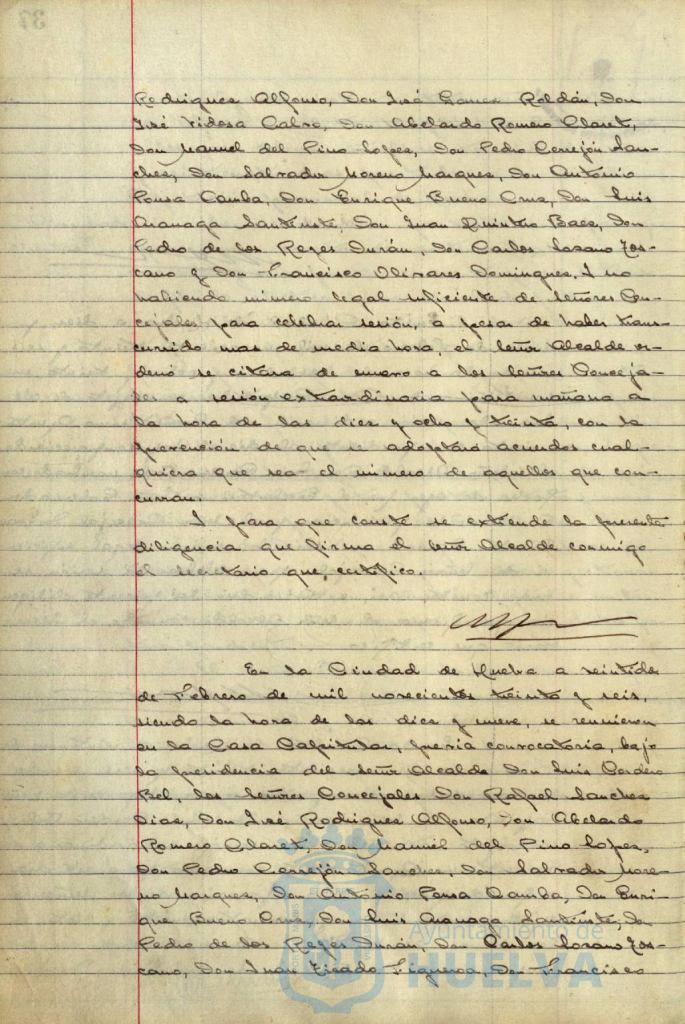 37
Rodriguez Alfonso, Don José Gomez Roldán, Don
José Vidosa Calvo, Don Abelardo Romero Claret,
Don Manuel del Pino Lopez, Don Pedro Cerrejón San-
chez, Don Salvador Moreno Marquez, Don António
Ponsa Camba, Don Enrique Bueno Cruz, Don Luis
Aranaga Don Juan Quintero Baez, Don
Pedro de los Reyes Durán, Don Carlos Lozano Tos-
cano y Don Francisco Olivares Dominguez, Y no
habiendo número legal suficiente de Señores Con-
cejales para celebrar sesión, a pesar de haber trans-
currido mas de media hora, el Señor Alcalde or-
denó se citara de nuevo a los Señores Conceja-
les a sesión extraordinaria para mañana a
la hora de las diez y ocho y treinta, con la
prevención de que se adoptará acuerdos cual-
quiera que sea el número de aquellos que con-
curran.
Y para que conste se extiende la presente
diligencia que firma el Señor Alcalde conmigo
el Secretario que, certifico.
En la Ciudad de Huelva a veintidos
de Febrero de mil novecientos treinta y seis,
siendo la hora de las diez y nueve, se reunieron
en la Casa Capitular, previa convocatoria, bajo
la presidencia del Señor Alcalde Don Luis Cordero
Bel, los Señores Concejales Don Rafael Sanchez
Diaz, Don José Rodriguez Alfonso, Don Abelardo
Romero Claret, Don Manuel del Pino Lopez,
Don Pedro Cerrejón Sanchez, Don Salvador More-
no Marquez, Don António Ponsa Camba, Don Enri-
que Bueno Cruz, Don Luis Aranaga Don
Pedro de los Reyes Durán, Don Carlos Lozano Tos-
cano, Don Juan Tirado Figueroa, Don Francisco
Ayuntamiento de
HUELVA